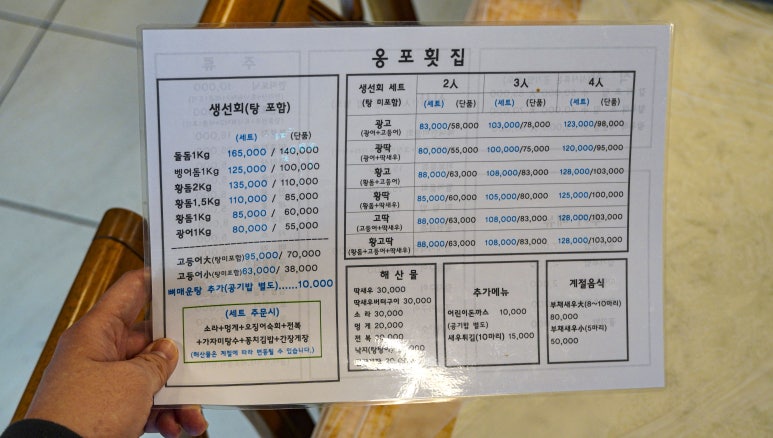 옹포횟집
생선회(탕 포함)
(세트) (단품)
돌돔1Kg 165,000 / 140,000
벵어돔1Kg 125,000 / 100,000
황돔2Kg 135,000 / 110,000
황돔1.5Kg 110,000 / 85,000
황돔1Kg 85,000 / 60,000
광어1Kg 80,000 / 55,000
고등어大(탕미포함)95,000/ 70,000
고등어小(탕미포함)63,000/ 38,000
뼈매운탕 추가(공기밥 별도)......10,000
(세트 주문시)
소라+멍게+오징어숙회+전복
+가자미탕수+꽁치김밥+간장게장
(해산물은 계절에 따라 변동될 수 있습니다.)
생선회 세트 2人 3人 4人
(탕 미포함) (세트) (단품) (세트) (단품) (세트) (단품)
광고 83,000/58,000 103,000/78,000 123,000/98,000
(광어+고등어)
광딱 80,000/55,000 100,000/75,000 120,000/95,000
(광어+딱새우)
황고 88,000/63,000 108,000/83,000 128,000/103,000
(황돔+고등어)
황딱 85,000/60,000 105,000/80,000 125,000/100,000
(황돔+딱새우)
고딱 88,000/63,000 108,000/83,000 128,000/103,000
(고등어+딱새우)
황고딱 88,000/63,000 108,000/83,000 128,000/103,000
(황돔+고등어+딱새우)
해산물
딱새우 30,000
딱새우버터구이 30,000
소라 30,000
멍게 20,000
전복
낙지(탕탕
추가메뉴
어린이돈까스 10,000
(공기밥 별도)
새우튀김(10마리) 15,000
계절음식
부채새우大(8~10마리)
80,000
부채새우小(5마리)
50,000